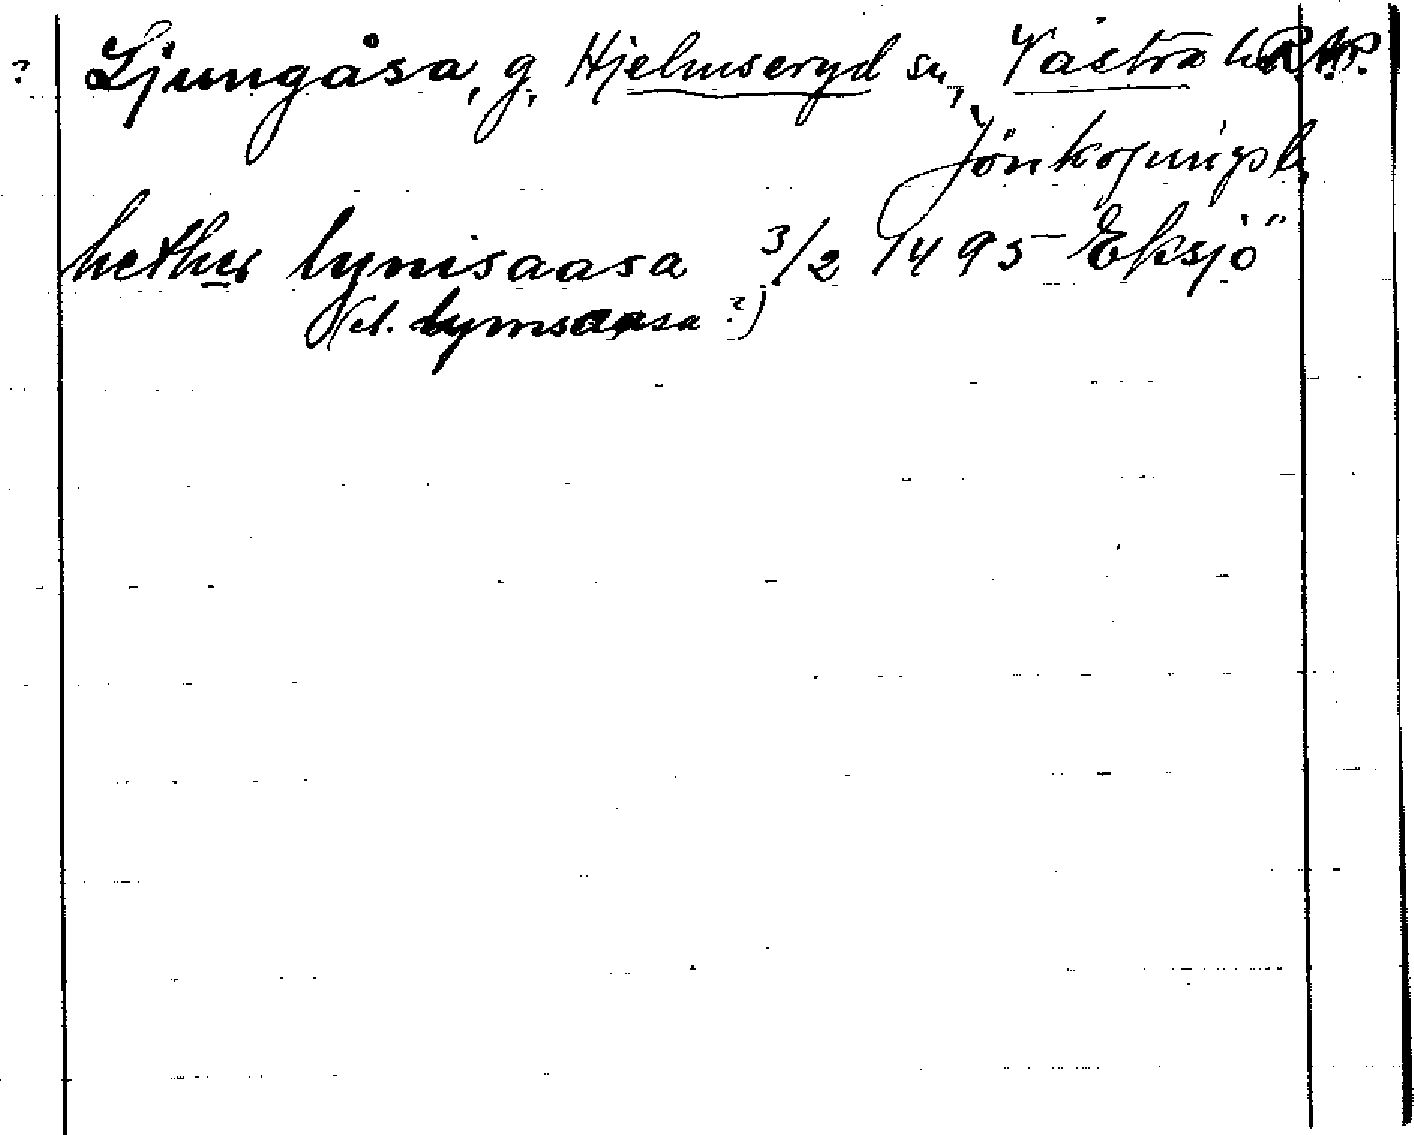 ? Ljungåsa, g, Hjelmseryd sn, Västra h. RAP.
Jönköpingsl.
hether lynisaasa 3/2 1495 Eksjö
(el. lymsaasa?)